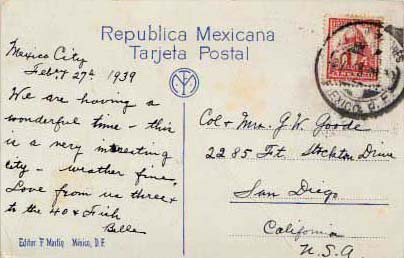 Republica Mexicana
Tarjeta Postal
Mexico City
Feb. 27th 1939
We are having a
wonderful time - this
is a very interesting
city - weather fine.
Love from us three
to the 40 & Fish
Belle
Col & Mrs. G. W. Goode
2285 Ft. Stockton Drive
San Diego
California
U.S.A.
MEXICO, D. F.
Editor F. Martin México, D.F.